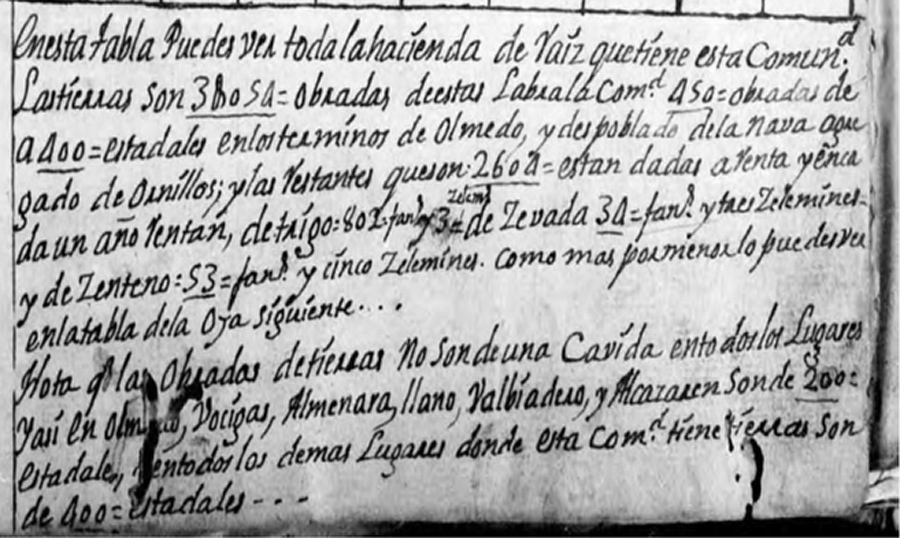 Enesta tabla Puedes ver toda la hacienda de Raiz que tiene esta Comun.d
Las tierras son 3805 4= obradas de estas Labra la Com.d 450= obradas de
a 400= estadales en los terminos de Olmedo, y despoblado de la Nava agre
gado de Ornillos; y las Restantes que son: 2604= estan dadas a Renta y en ca
da un año Rentan, de trigo: 802= fan.s y 3= Zelem.s de Zevada 34= fan.s y tres Zelemines=
y de Zenteno: 53= fan.s y cinco Zelemines. como mas por menor lo puedes ver
en la tabla de la Oja siguiente...
Nota q.e las Obradas de tierras No son de una Cavida en todos los Lugares
Y asi En Olmedo, Bocigas, Almenara, llano, Valviadero, y Alcazaren son de 200=
estadales, y en todos los demas Lugares donde esta Com.d tiene tierras son
de 400= estadales - - -